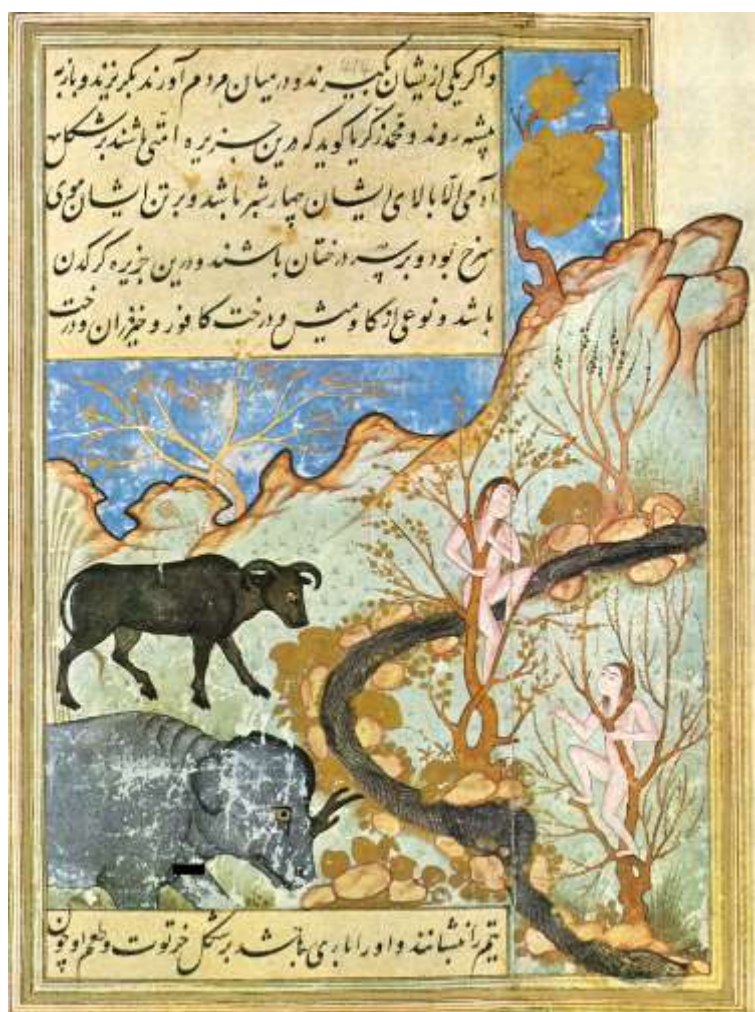 واکر یکی از یشان بگیرند و در میان مردم آورند بگریزند و باز به
بیشه روند و محمد زکریا کوید که درین جزیره امتی باشند بر شکل
آدمی الّا بالای ایشان چهار شبر باشد و بر تن ایشان موی
سرخ بود و بر سر درختان باشند و درین جزیره کرکدن
باشد و نوعی از کاومیش و درخت کافور و خیزران و درخت
بقم را بنشانند و او را باری باشد بر شکل خرتوت و طعم او چون